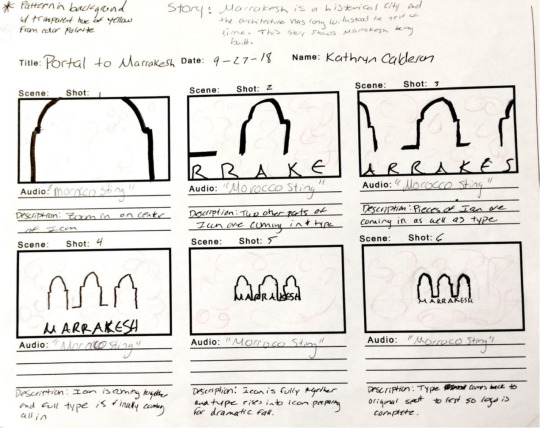 * Pattern in background
w/ transparent hue of yellow
from color palette
Story: Marrakesh is a historical city and
the architecture has long withstood the test of
time. This story shows Marrakesh being
built.
Title: Portal to Marrakesh Date: 9-27-18 Name: Kathryn Calderon
Scene: Shot: 1
Scene: Shot: 2
Scene: Shot: 3
RRAKE
ARRAKES
Audio: "Morocco Sting"
Audio: "Morocco Sting"
Audio: "Morocco Sting"
Description: Zoom in on center
of Icon
Description: Two other parts of
Icon are coming in + type
Description: Pieces of Icon are
coming in as well as type
Scene: Shot: 4
Scene: Shot: 5
Scene: Shot: 6
MARRAKESH
MARRAKESH
MARRAKESH
Audio: "Morocco Sting"
Audio: "Morroco Sting"
Audio: "Morroco Sting"
Description: Icon is coming together
and full type is finally coming
all in
Description: Icon is fully together
and type rises into icon preparing
for dramatic fall.
Description: Type comes back to
original spot to rest so logo is
complete.